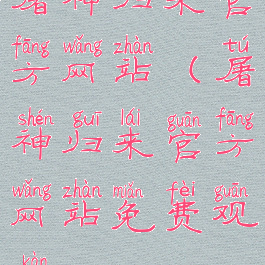 屠神归来官
fāng wǎng zhàn tú
方网站（屠
shén guī lái guān fāng
神归来官方
wǎng zhàn miǎn fèi guān
网站免费观
kàn